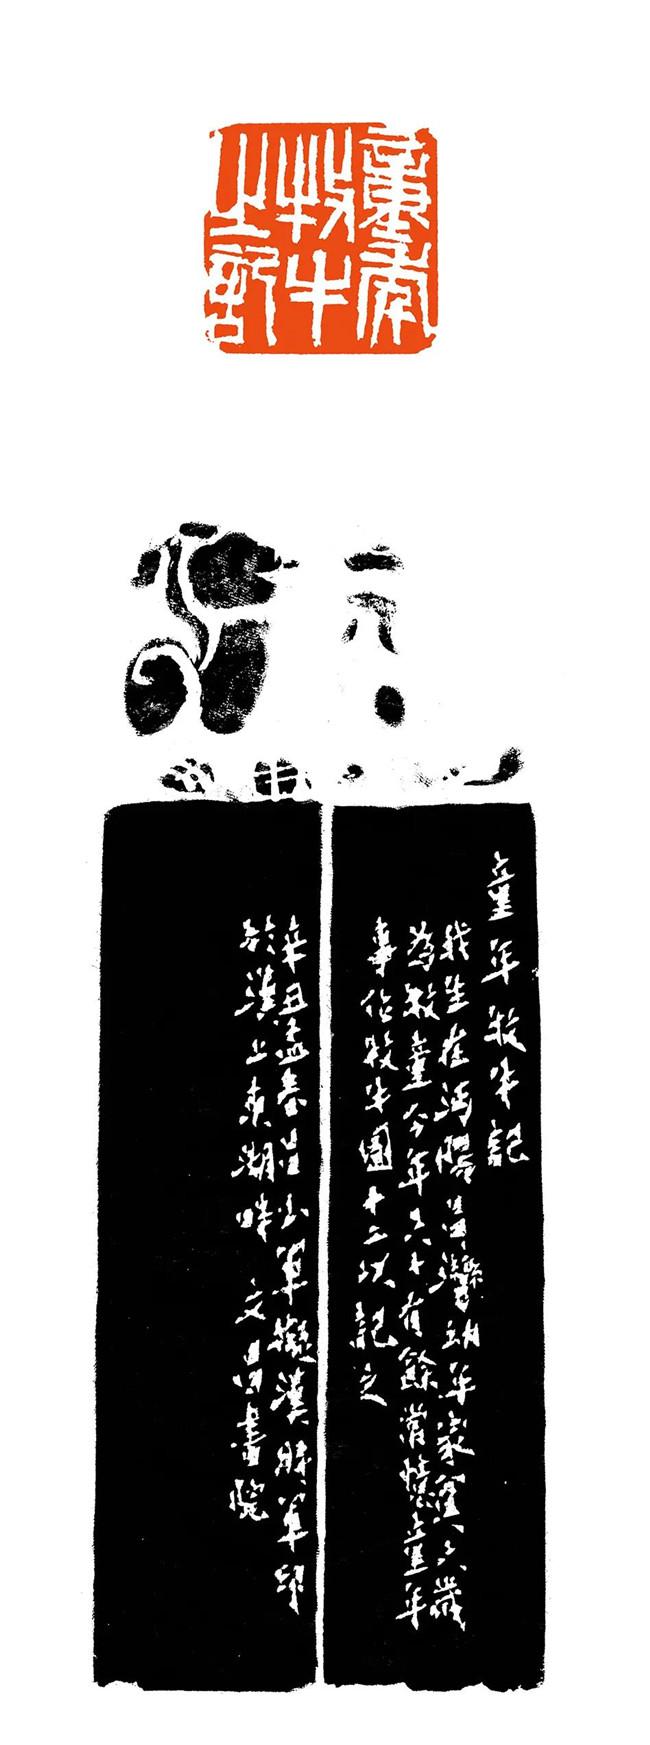 童年
牧牛
之記
童年牧牛記
我生在沔陽昌灣幼年家窘六歲
為牧童今年六十有餘常憶童年
事作牧牛圖十二以記之
辛丑孟春昌山草擬漢將軍印
於漢上東湖畔 文昌書院